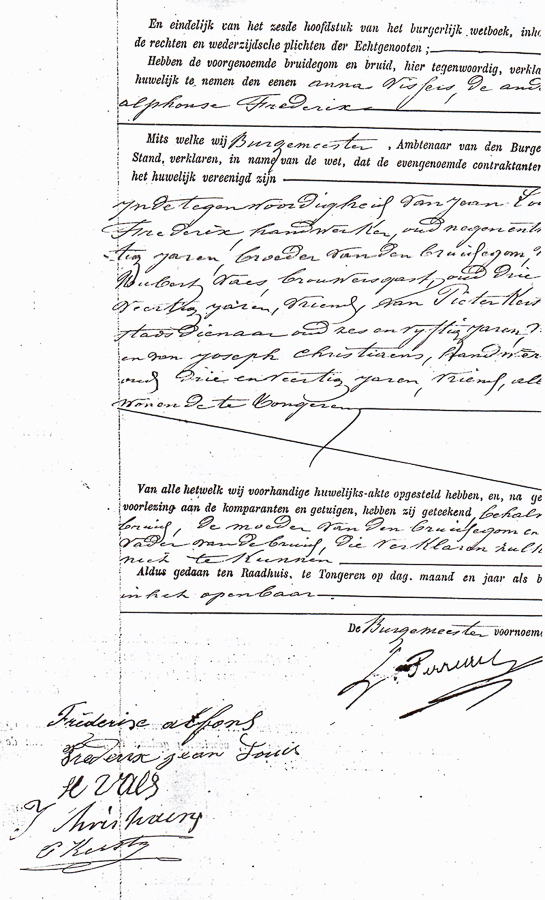 En eindelijk van het zesde hoofdstuk van het burgerlijk wetboek, inho
de rechten en wederzijdsche plichten der Echtgenooten ;
Hebben de voorgenoemde bruidegom en bruid, hier tegenwoordig, verkla
huwelijk te nemen den eenen anna Vissers, de and
alphonse Frederix
Mits welke wij Burgemeester , Ambtenaar van den Burge
Stand, verklaren, in name van de wet, dat de evengenoemde contraktanten
het huwelijk vereenigd zijn
In de tegenwoordigheid van jean Lou
Frederix handwerker, oud negenentw
tig jaren, broeder van den bruidegom,
Hubert Vaes, brouwersgast, oud drie
veertig jaren, vriend, van Pieter Kers
stadsdienaar oud zes en vyftig jaren,
en van joseph Christiaens, handwer
oud drie en veertig jaren, vriend, all
wonende te Tongeren
Van alle hetwelk wij voorhandige huwelijks-akte opgesteld hebben, en, na ge
voorlezing aan de komparanten en getuigen, hebben zij geteekend behalv
bruid, de moeder van den bruidegom en
vader van de bruid, die verklaren zulk
niet te kunnen
Aldus gedaan ten Raadhuis, te Tongeren op dag, maand en jaar als b
in het openbaar
De Burgemeester voornoemd
Fréderix alfons
Frederix jean Louis
H Vaes
J Christiaens
P Kersty